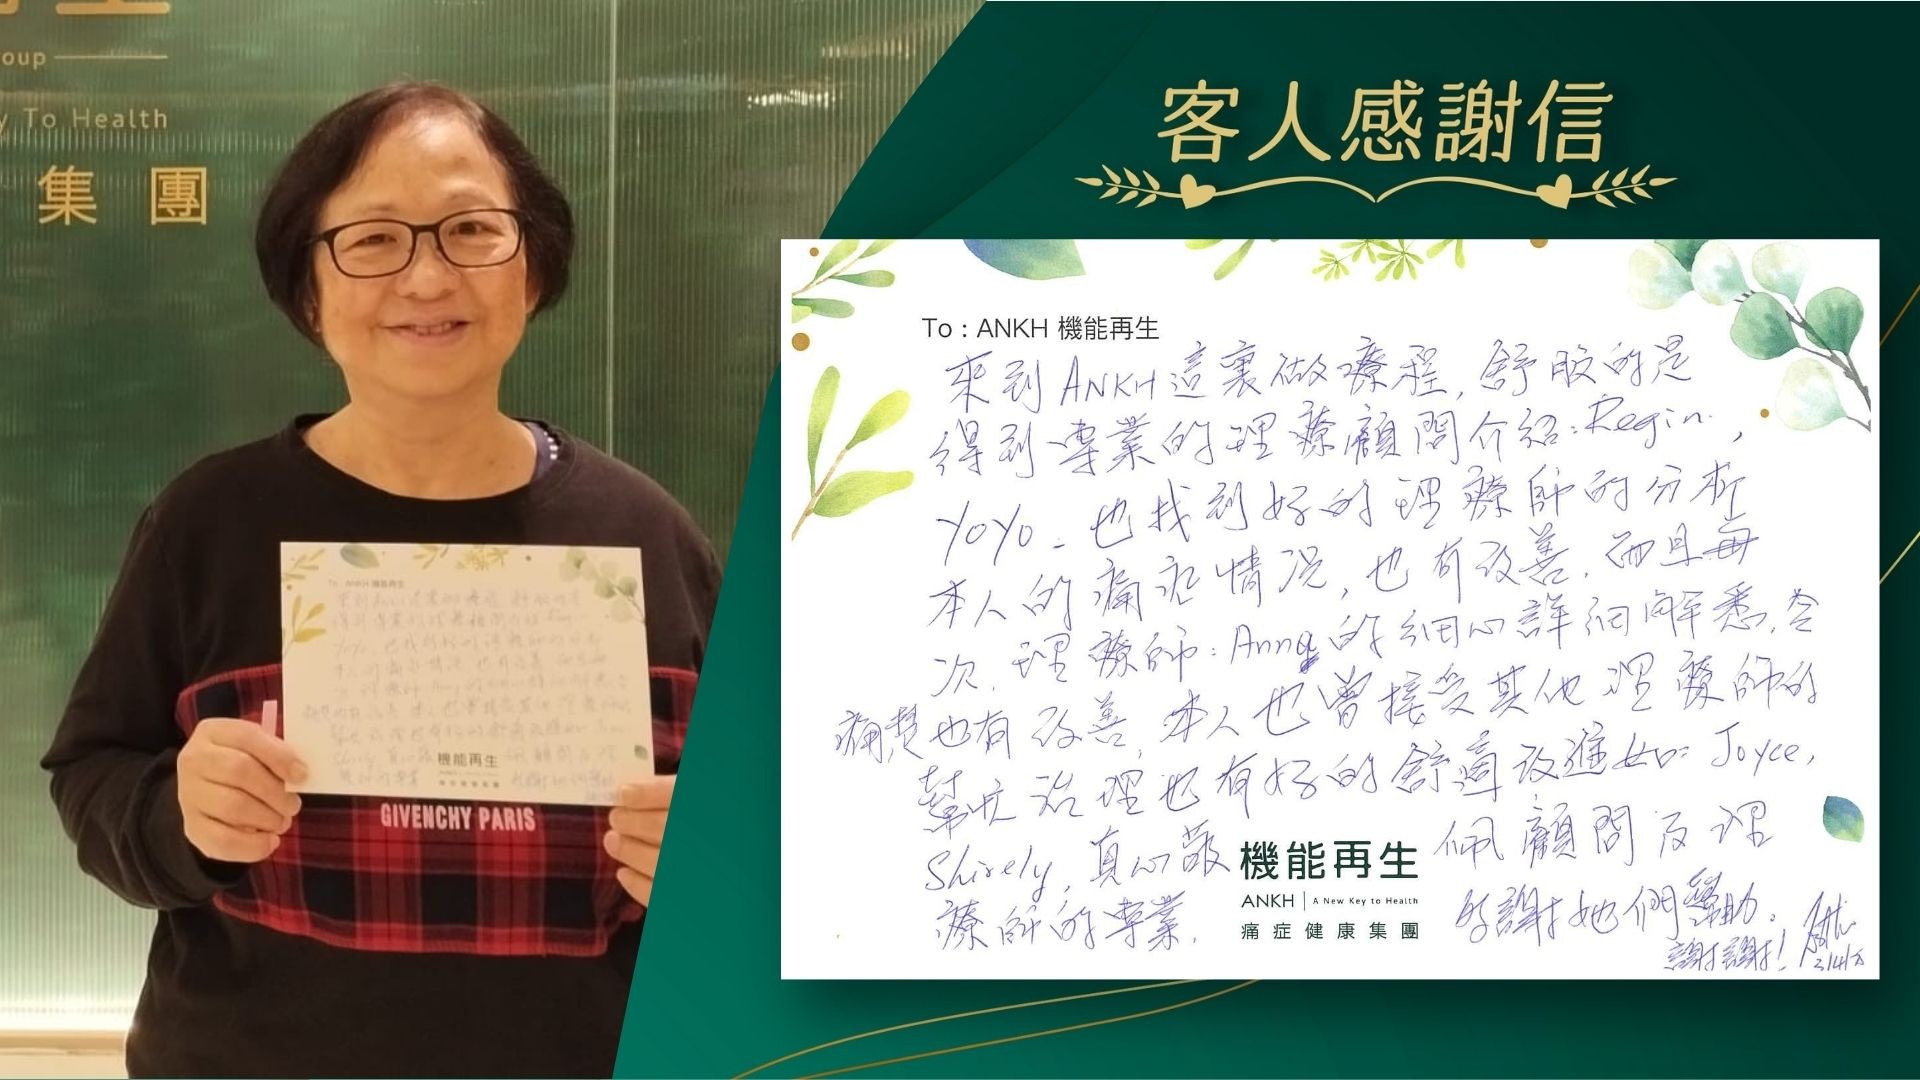 oup
y To Health
集團
客人感謝信
To : ANKH 機能再生
來到ANKH這裏做療程,舒服的是
得到專業的理療顧問介紹:Regin,
YoYo. 也找到好的理療師的分析
本人的痛症情況,也有改善.而且每
次,理療師:Anna的細心詳細解悉,令
痛楚也有改善,本人也曾接受其他理療師的
幫忙治理也有好的舒適改進如:Joyce,
Shirely,真心敬佩顧問及理
療師的專業. 多謝她們幫助.
謝謝!
機能再生
ANKH | A New Key to Health
痛症健康集團
To : ANKH 機能再生
機能再生
GIVENCHY PARIS